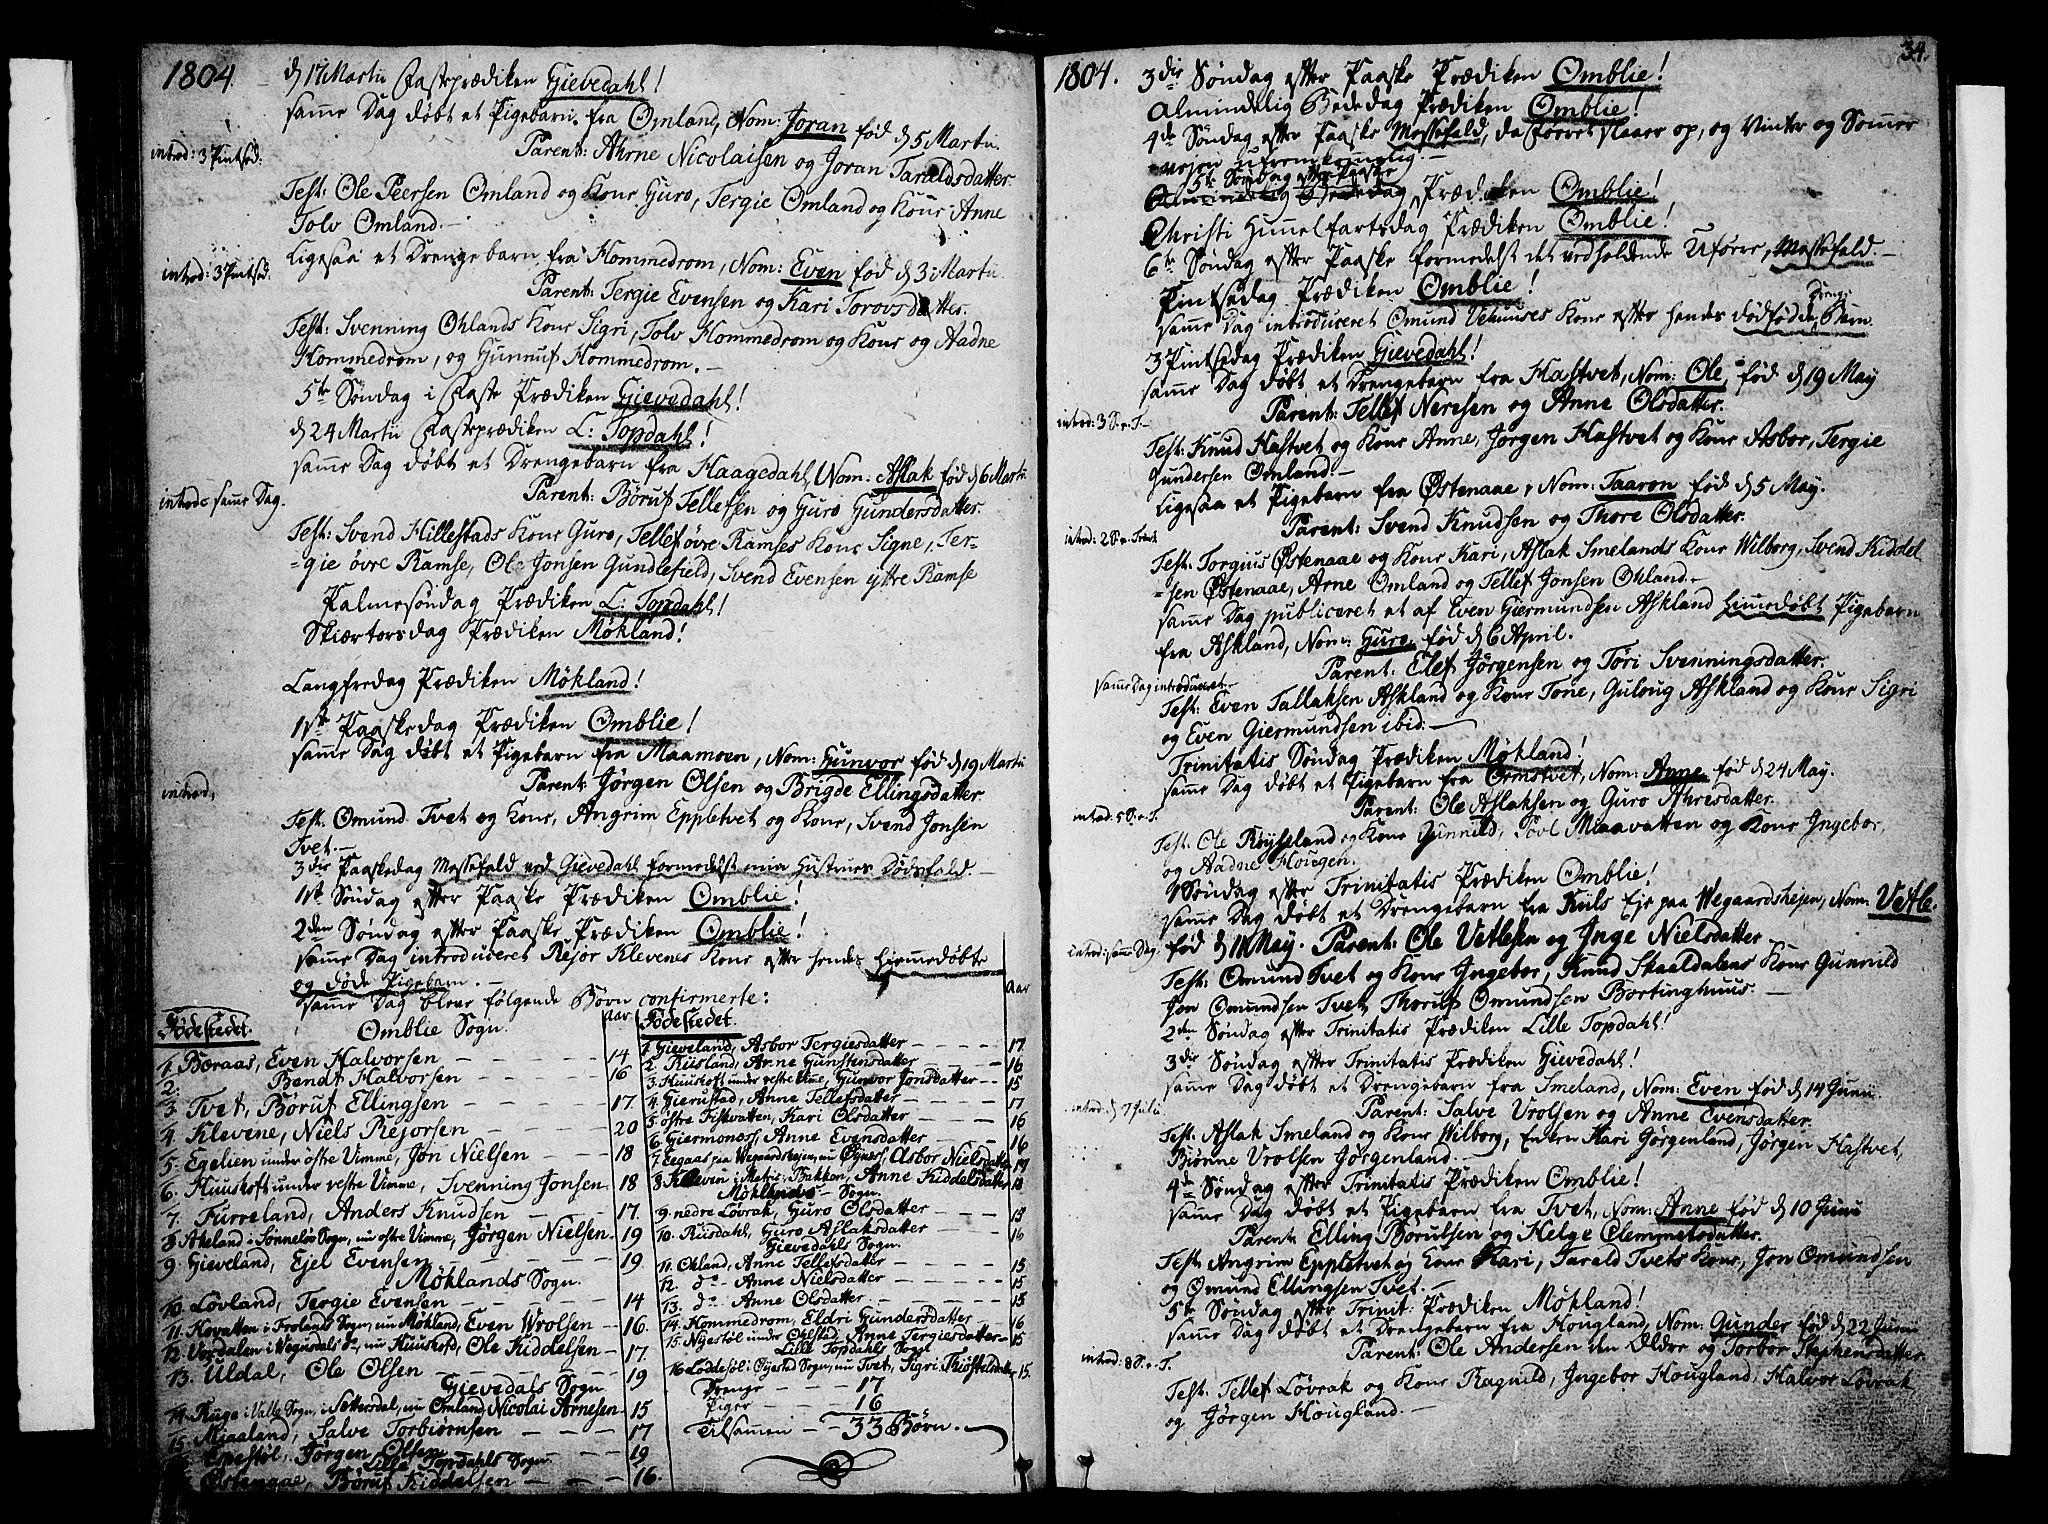 1804.
d 17 Martii Fasteprædiken Gievedahl!
samme Dag døbt et Pigebarn fra Omland, Nom: Joran fød d 5 Martii.
introd: 3 Pintsed:
Parent: Ahrne Nicolaisen og Joran Taraldsdatter.
Test: Ole Peersen Omland og Kone Guro, Tergie Omland og Kone Anne
Tolv Omland.
ligesaa et Drengebarn fra Hommedrom, Nom: Even fød d 3 Martii.
introd: 3 Pintsed.
Parent: Tergie Evensen og Kari Torovsdatter.
Test: Svenning Ohlands Kone Sigri, Tolv Hommedrom og Kone og Aadne
Hommedrom, og Gunnuf Hommedrom.
5te Søndag i Faste Prædiken Gievedahl!
d 24 Martii Fasteprædiken L: Topdahl!
samme Dag døbt et Drengebarn fra Haagedahl, Nom: Aslak fød d 6 Martii
introd: samme Dag.
Parent: Børuf Tellefsen og Guro Gundersdatter.
Test: Svend Hillestads Kone Guro, Tellef øvre Ramses Kone Signe, Ter-
-gie øvre Ramse, Ole Jonsen Gundlefield, Svend Evensen yttre Ramse
Palmesøndag Prædiken L: Topdahl!
Skiærtorsdag Prædiken Møkland!
Langfredag Prædiken Møkland!
1ste Paaskedag Prædiken Omblie!
samme Dag døbt et Pigebarn fra Maamoen, Nom: Gunvor fød d 19 Martii
introd,
Parent: Jørgen Olsen og Brigde Ellingsdatter.
Test: Omund Tvet og Kone, Angrim Eppletvet og Kone, Svend Jonsen
Tvet.
3die Paaskedag Messefald ved Gievedahl formedelst min Hustrues Dødsfald.
1ste Søndag efter Paaske Prædiken Omblie!
2den Søndag efter Paaske Prædiken Omblie!
samme Dag introduceret Rejor Klevenes Kone efter hendes hiemmedøbte
og døde Pigebarn.
samme Dag bleve følgende Børn confirmerte:
Fødestedet. Omblie Sogn. Aar
1. Beraas, Even Halvorsen 14
2. Bendt Halvorsen 16
3. Tvet, Børuf Ellingsen 17.
4. Klevene, Niels Rejorsen 20
5. Egelien under østre Vimme, Jon Nielsen 18
6. Huuskoft under vestre Vimme, Svenning Jonsen 18
7. Furreland, Anders Knudsen 17.
8. Akeland i Sønneløv Sogn, nu østre Vimme, Jørgen Nielsen 19
9. Gieveland, Ejel Evensen 19
Møklands Sogn.
10. Løvland, Tergie Evensen 14
11. Hovatten i Frolands Sogn, nu Møkland, Even Wrolsen 16.
12. Verdalen i Vegusdals do, nu Huuskoft, Ole Kiddelsen 17.
13. Uldal, Ole Olsen 19
Gievedals Sogn
14. Ruge i Valle Sogn, i Settersdal, nu Omland, Nicolai Arnesen 15
15. Mjaaland, Salve Torbiørnsen 17
Epestøl, Jørgen Olsen 19
Lille Topdahls Sogn.
Østenaae, Børuf Kiddelsen 16.
Fødestedet. Aar
1. Gieveland, Asbor Tergiesdatter 17
2. Riisland, Anne Gunstensdatter 16
3. Huuskoft under vestre Vime, Gunvor Jonsdatter 15
4. Gierustad, Anne Tellefsdatter 17
5. østre Fiskvatten, Kari Olsdatter 16
6. Giermones, Anne Evensdatter 16
7. Eegaas paa Wegaardshejen, nu Øynes, Asbor Nielsdatter 17
8. Klevin i Mykle, Bakken, Anne Kiddelsdatter 18
Møklands Sogn.
9. nedre Løvrak, Guro Olsdatter 15
10. Riisdahl, Guro Aslaksdatter 16
Gievedahls Sogn.
11. Ohland, Anne Tellefsdatter 15
12. do Anne Nielsdatter 15
13. do Anne Olsdatter 15
14. Hommedrom, Eldri Gundersdatter 16
15. Nyestøl under Ohlstad, Anne Tergiesdatter 15
Lille Topdahls Sogn
16. Loddesøl i Øyestad Sogn, nu Tvet, Sigri Thiostelsdatter 15.
Drenge 17
Piger 16
Tilsammen 33 Børn.
34.
1804.
3die Søndag efter Paaske Prædiken Omblie!
Almindelig Bededag Prædiken Omblie!
4de Søndag efter Paaske Messefald, da Førret slaaer op, og Vinter og Somer
vejen ufremkommelig.
5te Søndag efter Paaske
Almindelig Bededag Prædiken Omblie!
Christi Himmelfartsdag Prædiken Omblie!
6te Søndag efter Paaske formedelst det vedholdende Uføre, Messefald.
Pintsedag Prædiken Omblie!
samme Dag introduceret Omund Vehuuses Kone efter hendes dødfødde Drenge Barn.
3 Pintsedag Prædiken Gievedahl!
samme Dag døbt et Drengebarn fra Hastvet, Nom: Ole, fød d 19 May
Parent: Tellef Neresen og Anne Olsdatter.
introd: 3 S. e. T.
Test: Knud Hastvet og Kone Anne, Jørgen Hastvet og Kone Asbor, Tergie
Gundersen Omland.
ligesaa et Pigebarn fra Østenaae, Nom: Taaron fød d 5 May.
Parent: Svend Knudsen og Thore Olsdatter.
introd: 2 S. e. Trint
Test: Torguus Østenaae og Kone Kari, Aslak Smelands Kone Wilborg, Svend Kiddel
-sen Østenaae, Arne Omland og Tellef Jonsen Ohland.
samme Dag publiceret et af Even Giermundsen Askland hiemedøbt Pigebarn
fra Askland, Nom: Guro, fød d 6 April.
Parent: Elef Jørgensen og Tøri Svenningsdatter.
samme Dag introduceret
Test: Even Tallaksen Askland og Kone Tone, Guloug Askland og Kone Sigri
og Even Giermundsen ibid:
Trinitatis Søndag Prædiken Møkland!
samme Dag døbt et Pigebarn fra Ormstvet, Nom: Anne fød d 24 May.
Parent: Ole Aslaksen og Guro Ahresdatter.
introd: 5 S. e. T.
Test: Ole Røyseland og Kone Gunnild, Povl Miaavatten og Kone Ingebor,
og Aadne Hougen.
1 Søndag efter Trinitatis Prædiken Omblie!
samme Dag døbt et Drengebarn fra Kiils Eje paa Wegaardshejen, Nom: Vetle.
introd: samme Dag.
fød d 11 May. Parent: Ole Vetlesen og Inge Nielsdatter
Test: Omund Tvet og Kone Ingebor, Knud Skaaldalens Kone Gunnild
Jon Omundsen Tvet, Thoruf Omundsen Bortinghuus.
2den Søndag efter Trinitatis Prædiken Lille Topdahl!
3die Søndag efter Trinitatis Prædiken Gievedahl!
samme Dag døbt et Drengebarn fra Smeland, Nom: Even fød d 14 Junii.
introd: d 7 Julii
Parent: Salve Vrolsen og Anne Evensdatter.
Test: Aslak Smeland og Kone Wilborg, Enken Kari Jørgenland, Jørgen Hastvet,
Biønne Vrolsen Jørgenland.
4de Søndag efter Trinitatis Prædiken Omblie!
samme Dag døbt et Pigebarn fra Tvet, Nom: Anne fød d 10 Junii
Parent: Elling Børufsen og Helge Clemmetsdatter.
Test: Angrim Eppletvet og Kone Kari, Tarald Tvets Kone, Jon Omundsen
og Omund Ellingsen Tvet.
5te Søndag efter Trinit: Prædiken Møkland!
samme Dag døbt et Drengebarn fra Hougland, Nom: Gunder fød d 22 Junii
introd: 8 S. e. T.
Parent: Ole Andersen den Eldre og Torbor Stephensdatter.
Test: Tellef Løvrak og Kone Ragnild, Ingebor Hougland, Halvor Løvrak
og Jørgen Hougland.